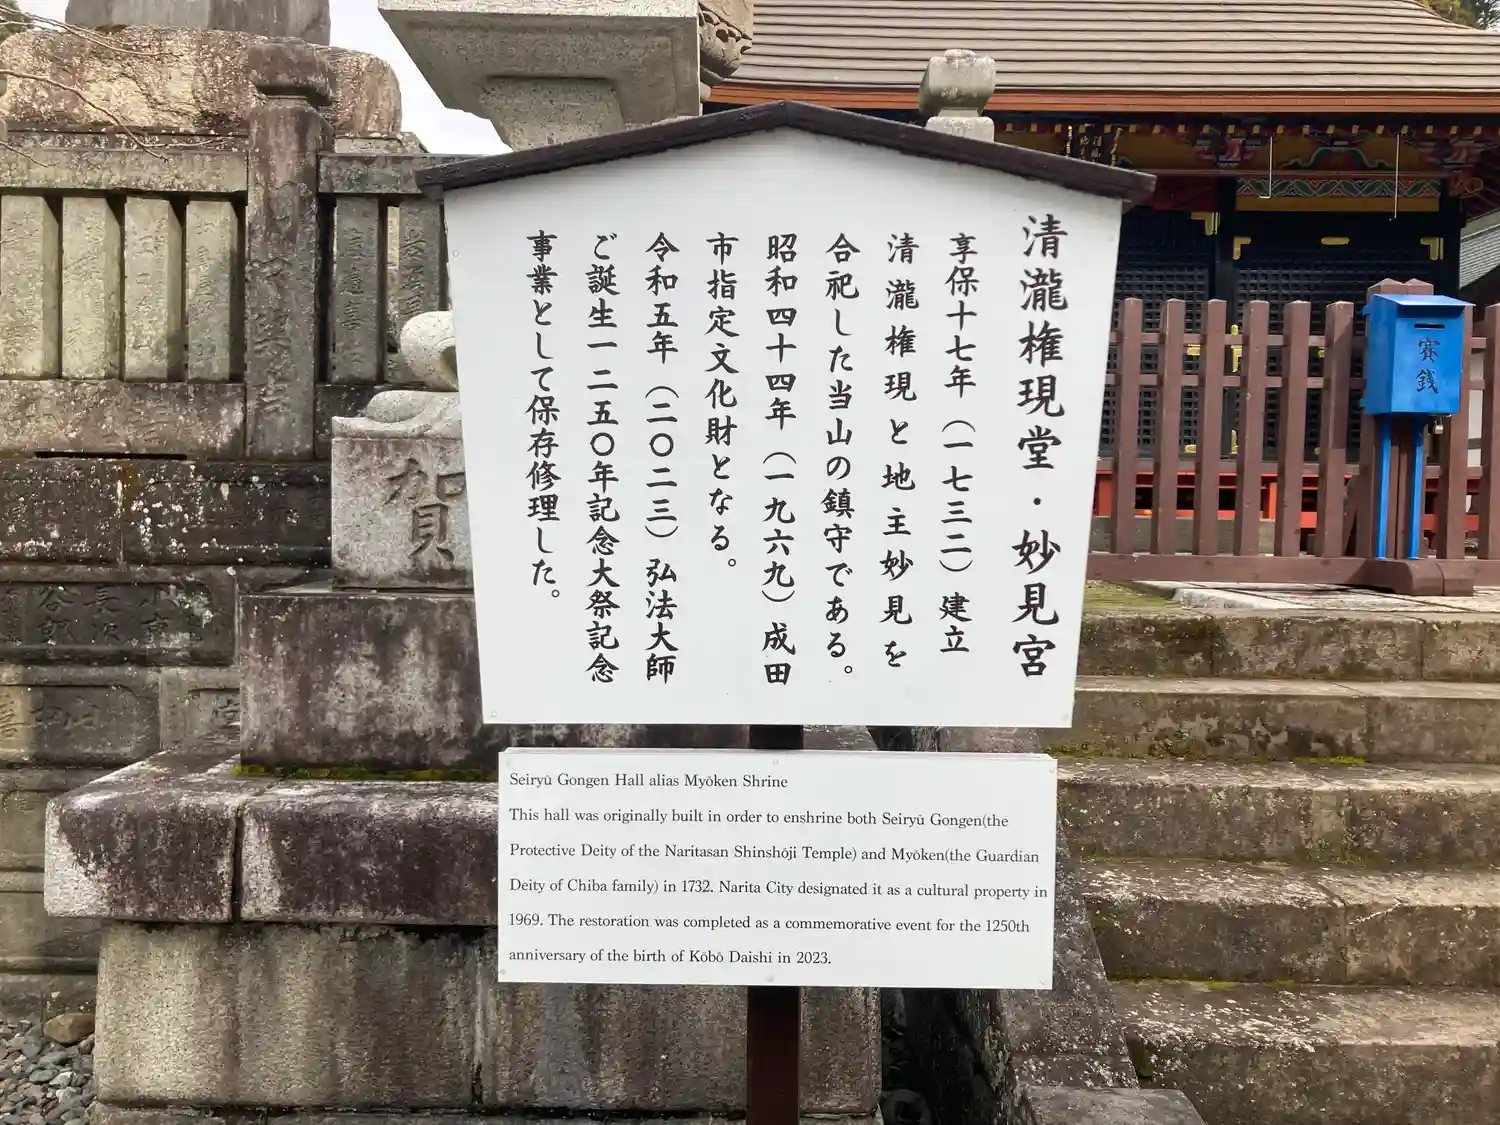 清瀧権現堂・妙見宮
享保十七年（一七三二）建立
清瀧権現と地主妙見を
合祀した当山の鎮守である。
昭和四十四年（一九六九）成田
市指定文化財となる。
令和五年（二〇二三）弘法大師
ご誕生一二五〇年記念大祭記念
事業として保存修理した。
Seiryū Gongen Hall alias Myōken Shrine
This hall was originally built in order to enshrine both Seiryū Gongen(the
Protective Deity of the Naritasan Shinshōji Temple) and Myōken(the Guardian
Deity of Chiba family) in 1732. Narita City designated it as a cultural property in
1969. The restoration was completed as a commemorative event for the 1250th
anniversary of the birth of Kōbō Daishi in 2023.
賽銭
賀